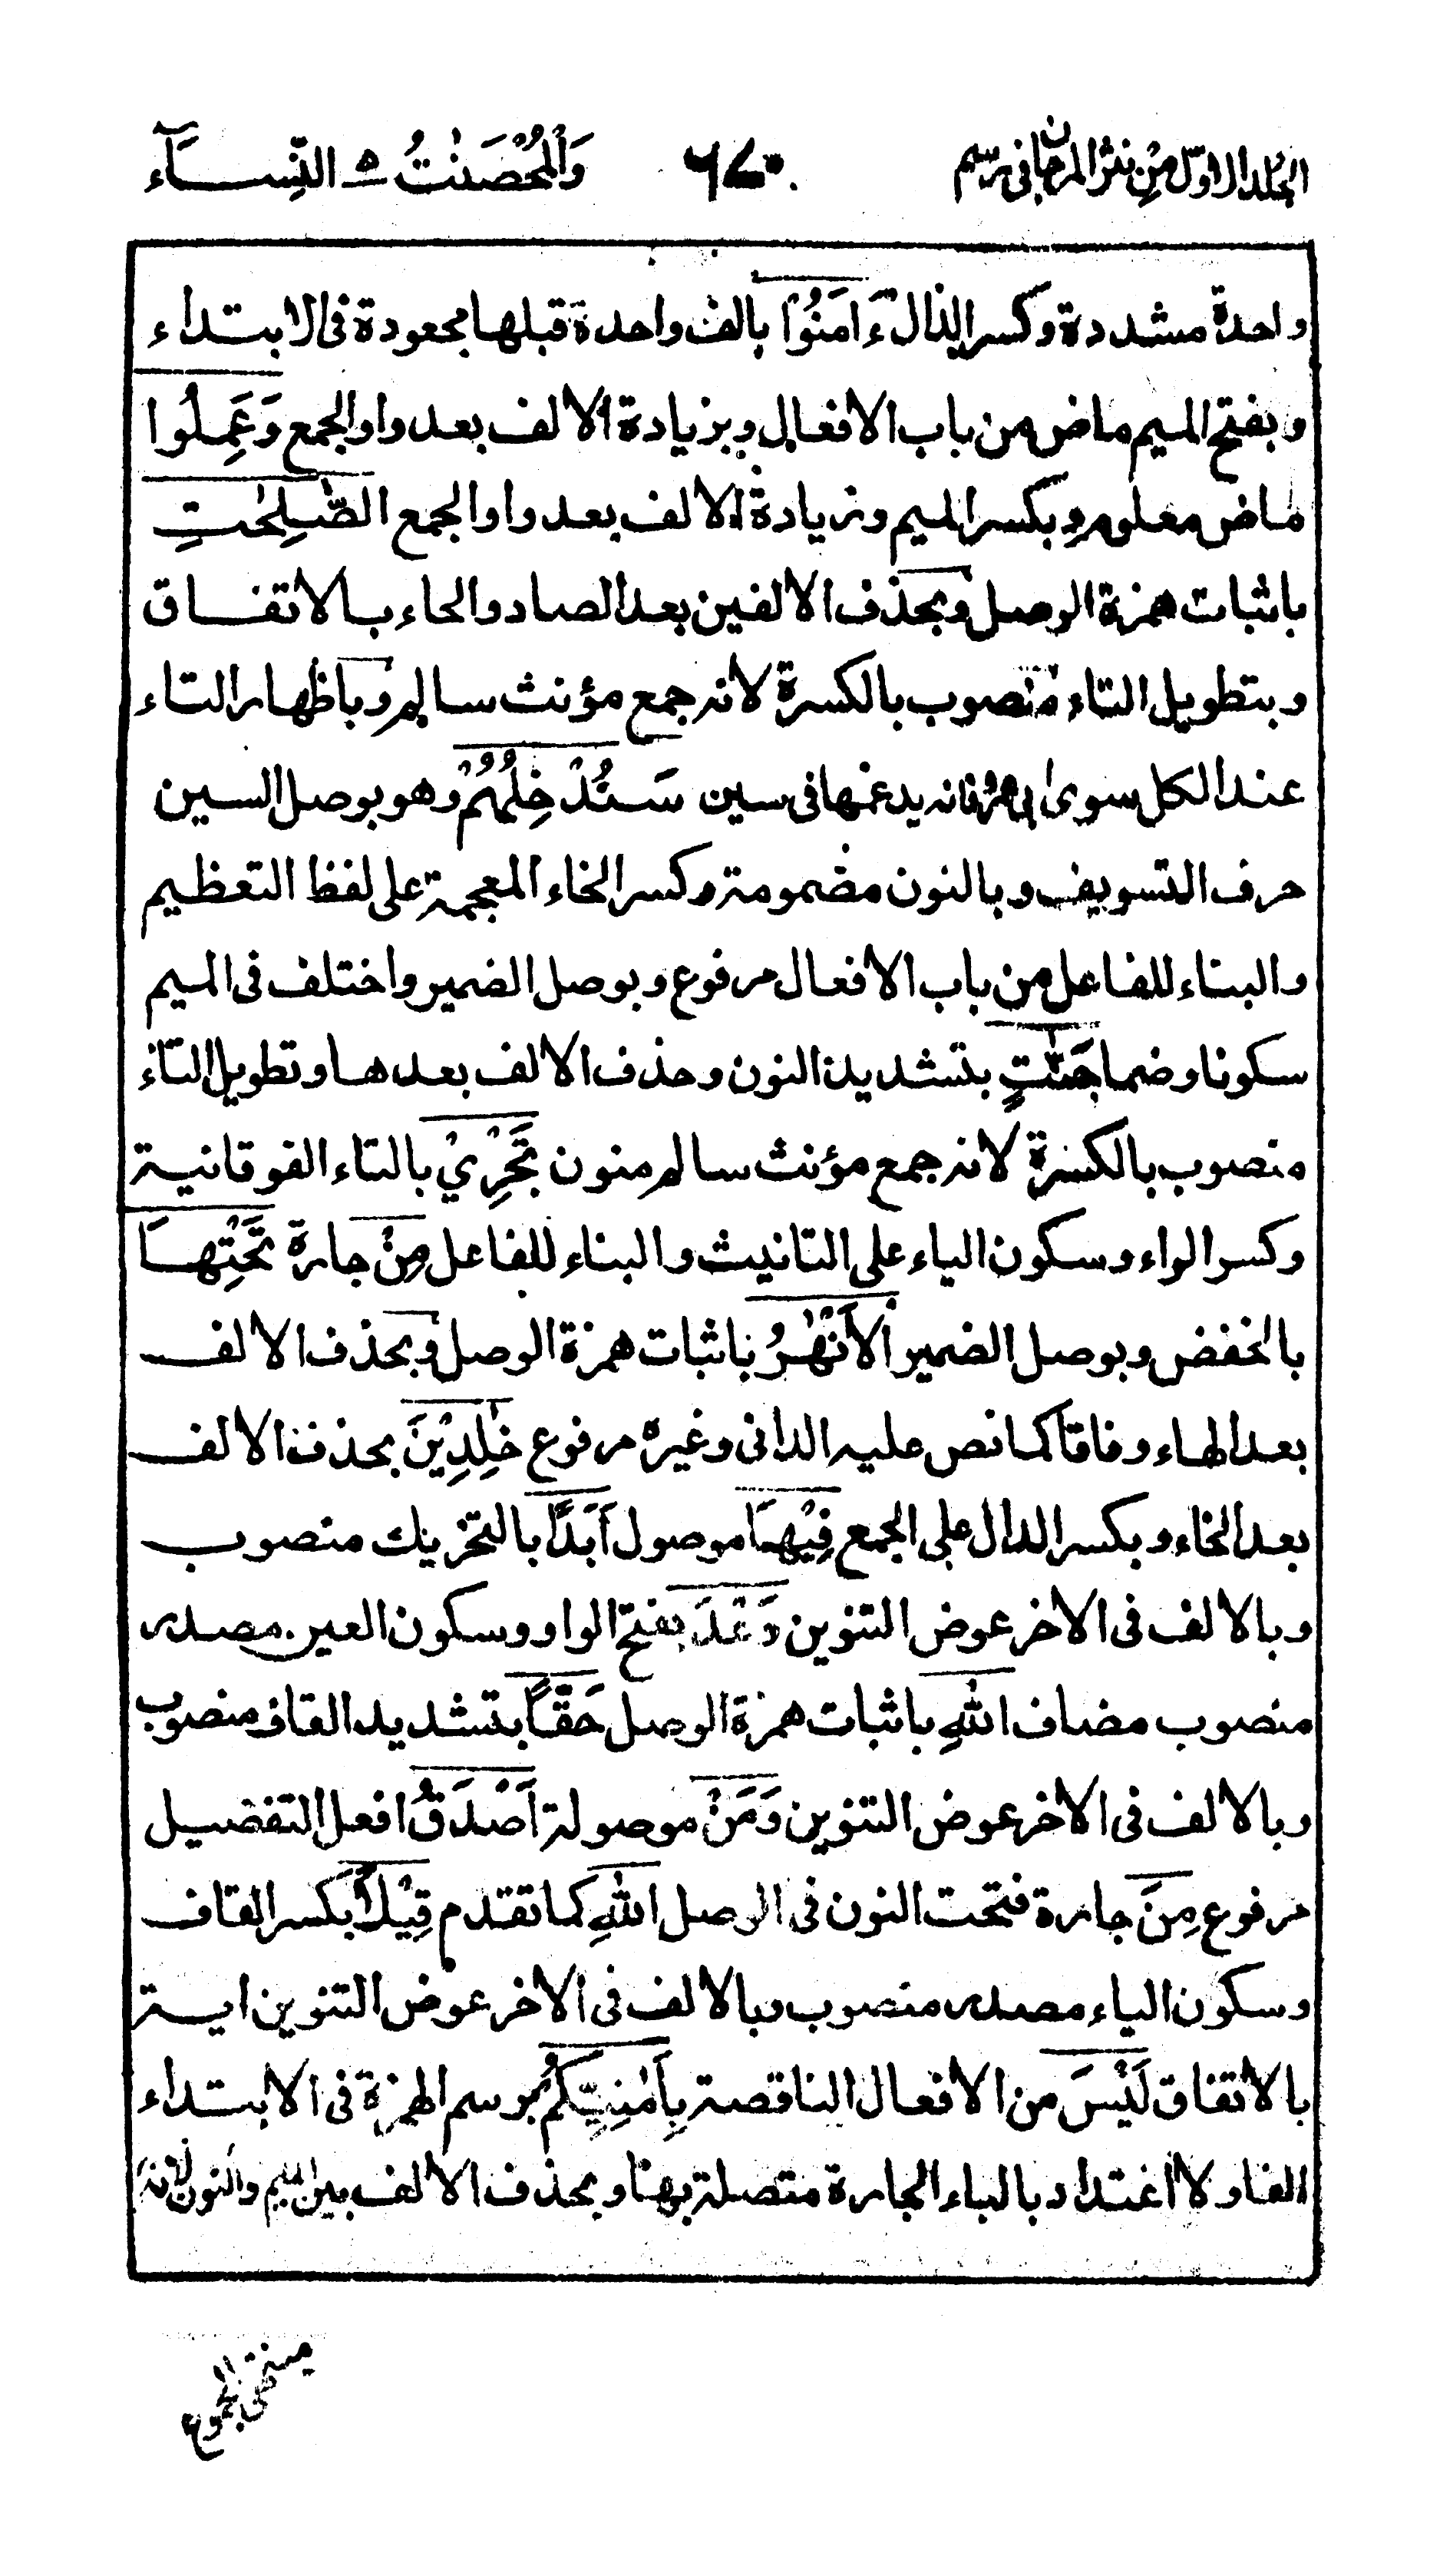 الجلد الاول من نثر المرجان فى رسم ٦٧٠ وَالْمُحْصَنٰتُ ٥ النِّسَآء
واحدة مشددة وكسر الذال ءَامَنُوْا بالف واحدة قبلها مجعودة فى الابتداء
وبفتح الميم ماض من باب الافعال وبزيادة الالف بعد واو الجمع وَعَمِلُوا
ماض معلوم وبكسر الميم وزيادة الالف بعد واو الجمع الصّٰلِحٰتِ
باثبات همزة الوصل وبحذف الالفين بعد الصاد والحاء بالاتفاق
وبتطويل التاء منصوب بالكسرة لانه جمع مؤنث سالم وباظهار التاء
عند الكل سوى ابى عمرو فانه يدغمها فى سين سَنُدْخِلُهُمْ وهو بوصل السين
حرف التسويف وبالنون مضمومة وكسر الخاء المعجمة على لفظ التعظيم
والبناء للفاعل من باب الافعال مرفوع وبوصل الضمير واختلف فى الميم
سكونا وضما جَنّٰتٍ بتشديد النون وحذف الالف بعدها وتطويل التاء
منصوب بالكسرة لانه جمع مؤنث سالم منون تَجْرِيْ بالتاء الفوقانية
وكسر الراء وسكون الياء على التانيث والبناء للفاعل مِنْ جارة تَحْتِهَا
بالخفض وبوصل الضمير الْاَنْهٰرُ باثبات همزة الوصل وبحذف الالف
بعد الهاء وفاقا كما نص عليه الدانى وغيره مرفوع خٰلِدِيْنَ بحذف الالف
بعد الخاء وبكسر الدال على الجمع فِيْهَا موصول اَبَدًا بالتحريك منصوب
وبالالف فى الاخر عوض التنوين وَعْدَ بفتح الواو وسكون العين مصدر
منصوب مضاف اللّٰهِ باثبات همزة الوصل حَقًّا بتشديد القاف منصوب
وبالالف فى الاخر عوض التنوين وَمَنْ موصولة اَصْدَقُ افعل التفضيل
مرفوع مِنَ جارة فتحت النون فى الوصل اللّٰهِ كما تقدم قِيْلًا بكسر القاف
وسكون الياء مصدر منصوب وبالالف فى الاخر عوض التنوين اية
بالاتفاق لَيْسَ من الافعال الناقصة بِاَمٰنِيِّكُمْ برسم الهمزة فى الابتداء
الفا ولا اعتداد بالباء الجارة متصلة بها وبحذف الالف بين الميم والنون لانه
منتهى الجموع